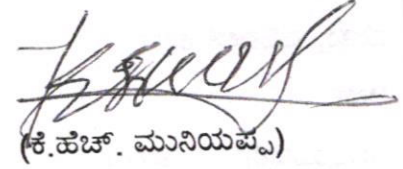 (ಕೆ.ಹೆಚ್. ಮುನಿಯಪ್ಪ)